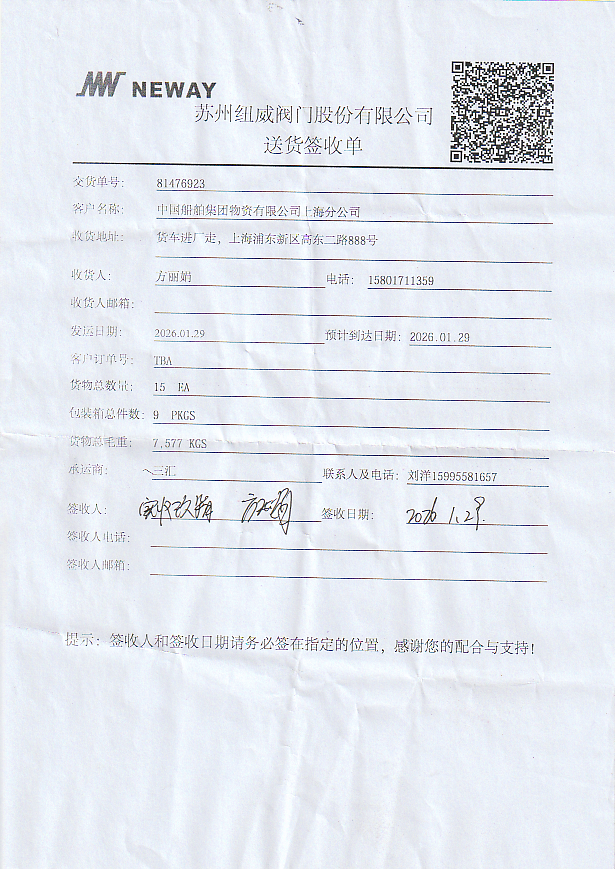 NEWAY
苏州纽威阀门股份有限公司
送货签收单
交货单号: 81476923
客户名称: 中国船舶集团物资有限公司上海分公司
收货地址: 货车进厂走，上海浦东新区高东二路888号
收货人: 方丽娟 电话: 15801711359
收货人邮箱:
发运日期: 2026.01.29 预计到达日期: 2026.01.29
客户订单号: TBA
货物总数量: 15 EA
包装箱总件数: 9 PKGS
货物总毛重: 7,577 KGS
承运商: 三汇 联系人及电话: 刘洋15995581657
签收人: 方丽娟 签收日期: 2026 1.29.
签收人电话:
签收人邮箱:
提示: 签收人和签收日期请务必签在指定的位置，感谢您的配合与支持!